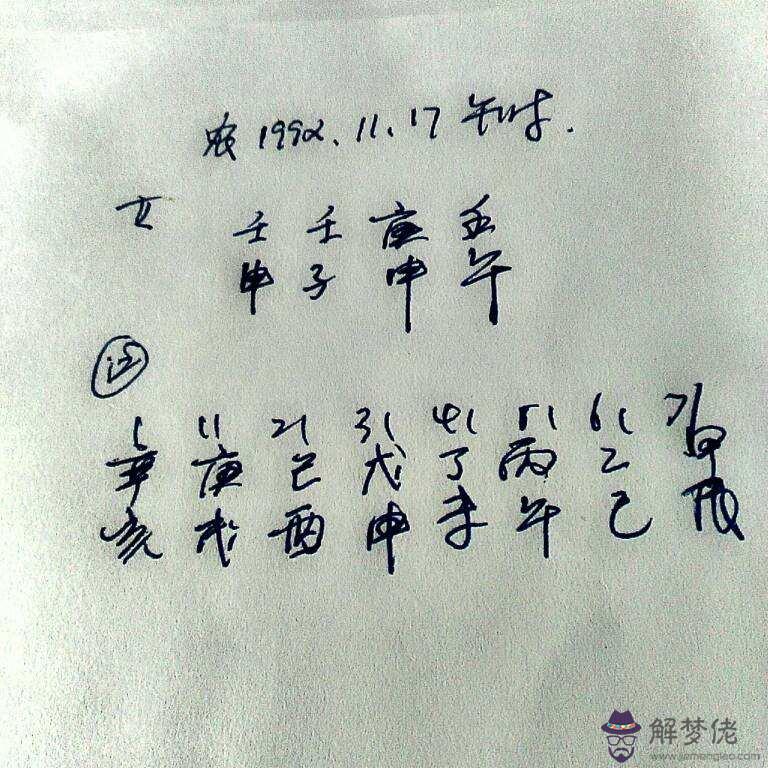 农1992.11.17 午时.
女 壬 壬 庚 壬
申 子 申 午
运
1 11 21 31 41 51 61 71
辛 庚 己 戊 丁 丙 乙 甲
亥 戌 酉 申 未 午 巳 辰
解梦佬
www.jiemenglao.com